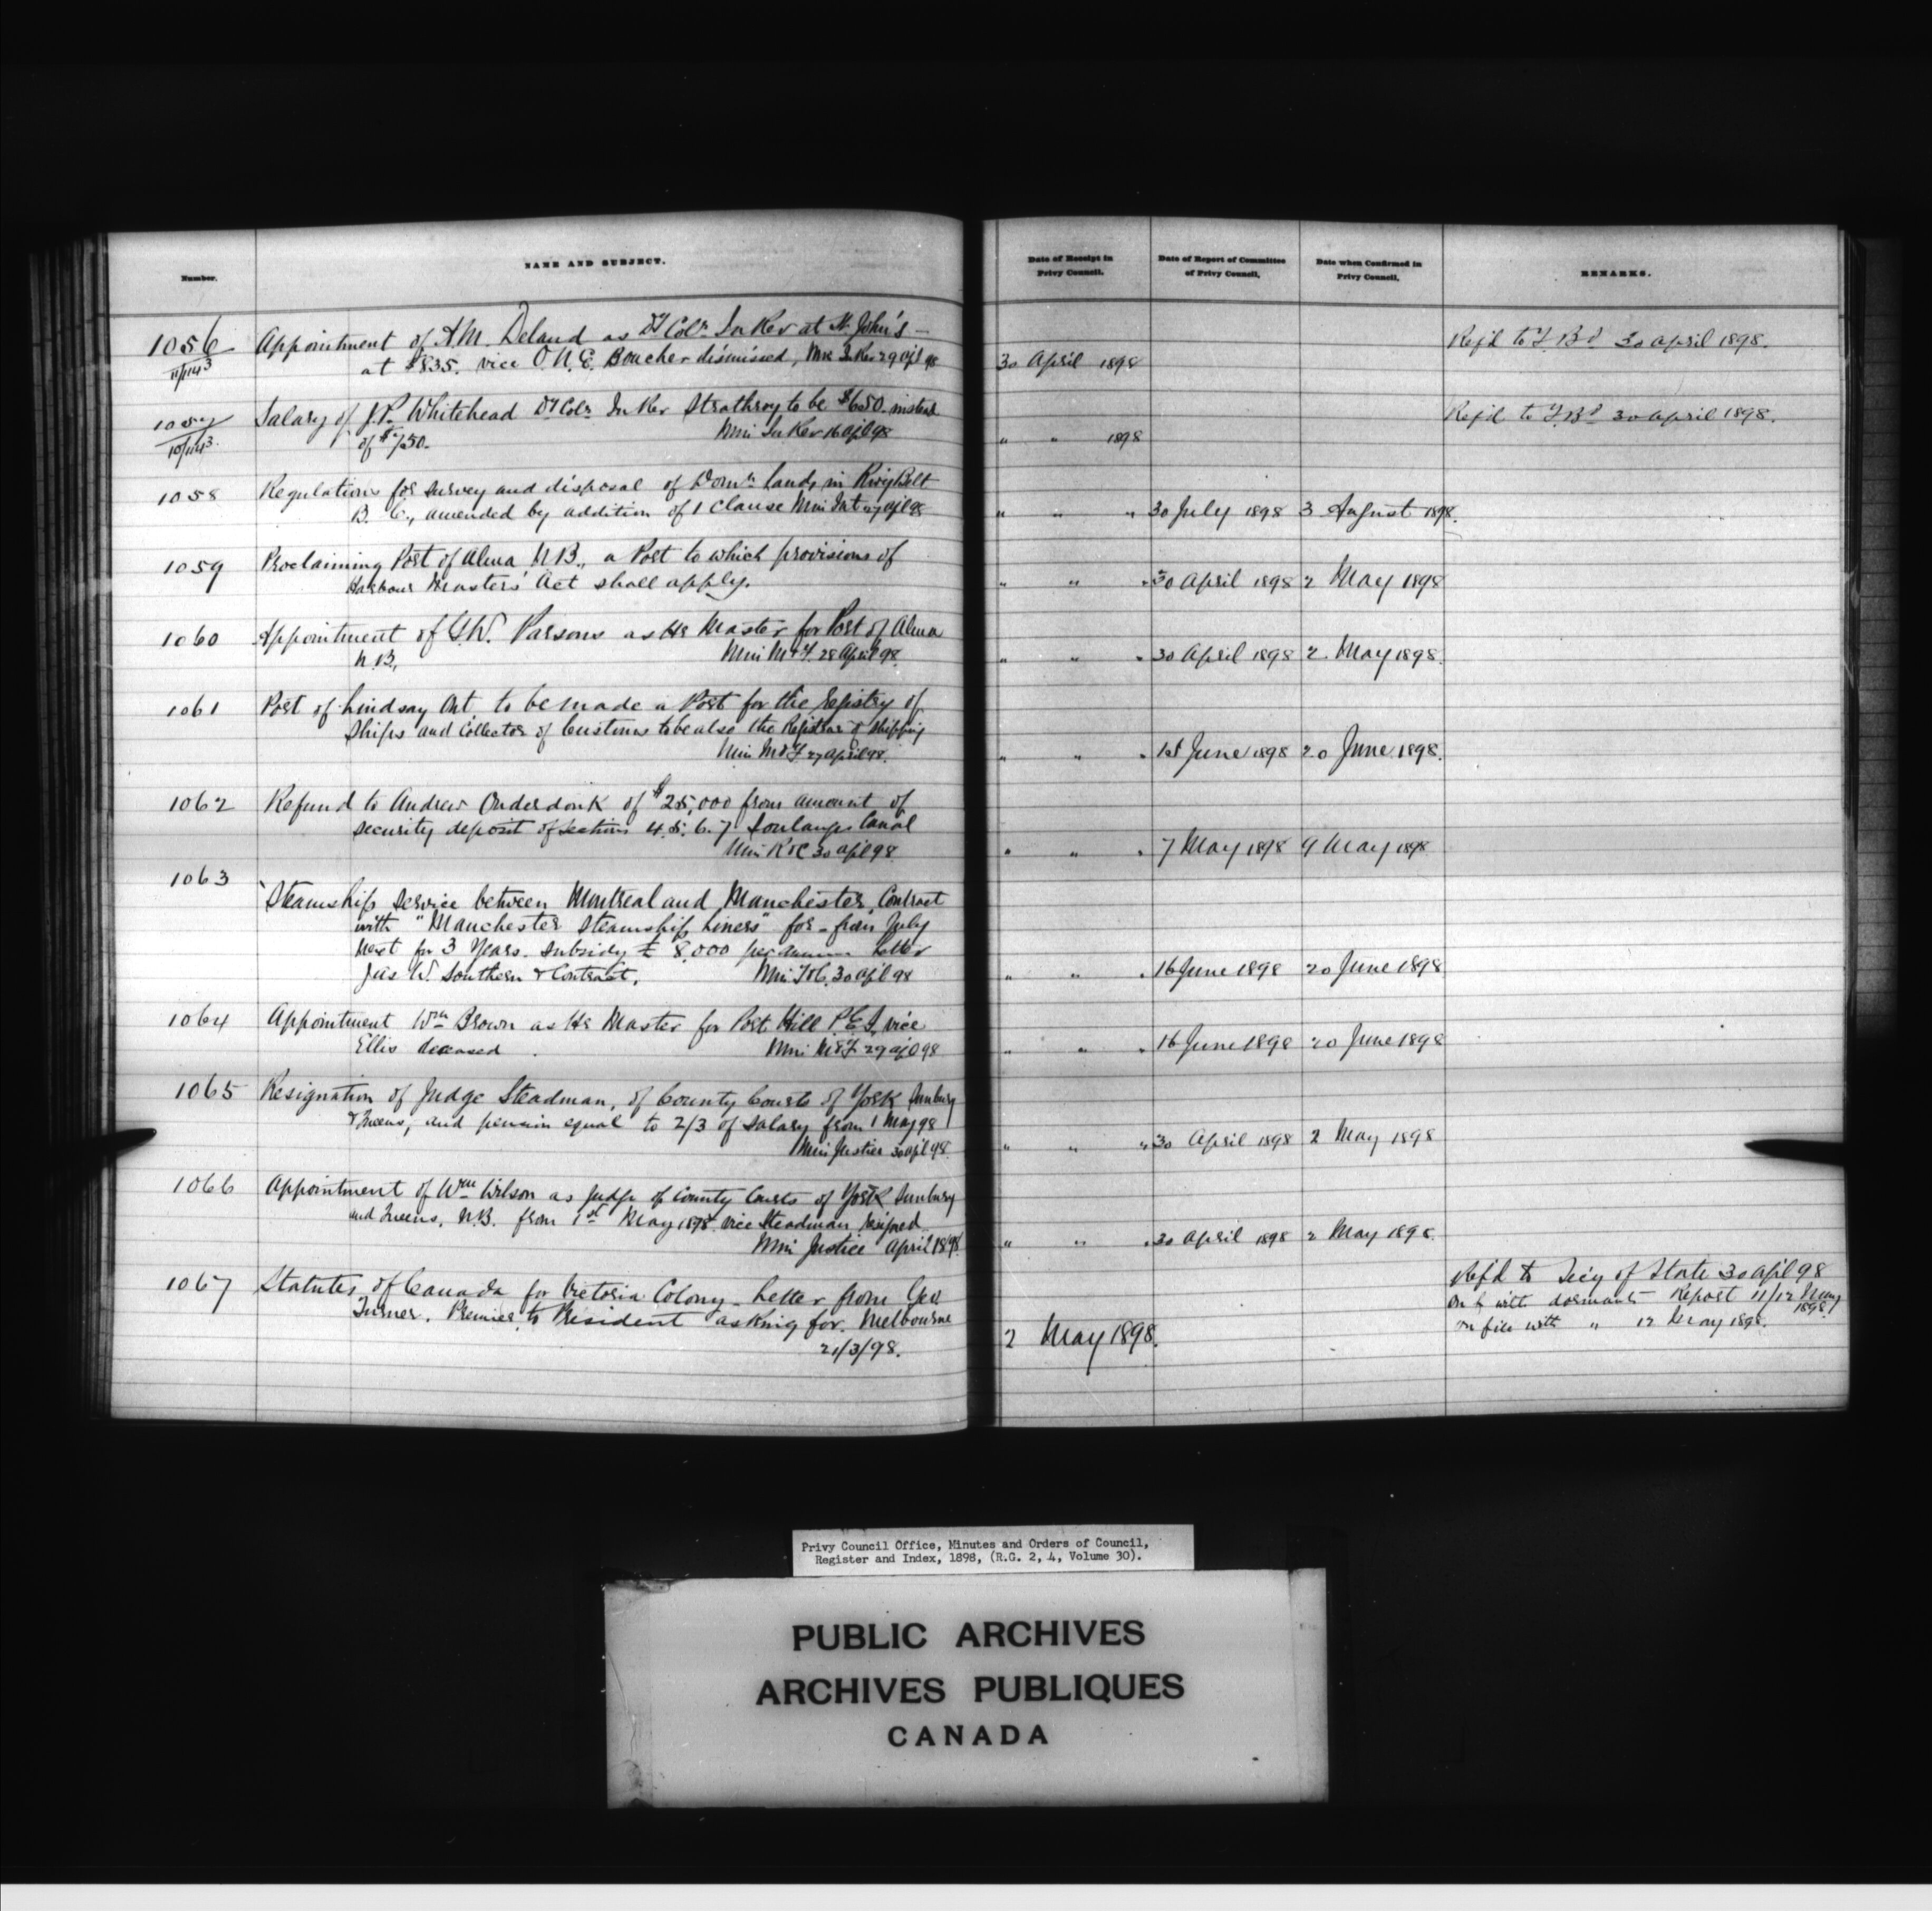 Number.
NAME AND SUBJECT.
Date of Receipt in
Privy Council.
Date of Report of Committee
of Privy Council.
Date when Confirmed in
Privy Council.
REMARKS.
1056 Appointment of A.M. Deland as Dy Colr In Rev at St. John's —
at $835. vice O.N.E. Boucher dismissed, Min In Rev 29 apl 98
30 April 1898
Refd to T. Bd 30 april 1898.
1057 Salary of J.P. Whitehead Dy Colr In Rev Strathroy to be $650. instead
of $750. Min In Rev 16 apl 98
" " 1898
Refd to T. Bd 30 april 1898.
1058 Regulations for survey and disposal of Domn lands in Rwy Belt
B.C., amended by addition of 1 clause Min Int 27 apl 98
" " " 30 July 1898 3 August 1898.
1059 Proclaiming Port of Alma N.B., a Port to which provisions of
Harbour Masters' Act shall apply.
" " " 30 April 1898 2 May 1898
1060 Appointment of G.W. Parsons as Hr Master for Port of Alma
N.B. Min M & F. 28 April 98.
" " " 30 April 1898 2 May 1898.
1061 Port of Lindsay Ont to be made a Port for the registry of
Ships and Collector of Customs to be also the Registrar of Shipping
Min M & F 27 april 98.
" " " 1st June 1898 20 June 1898.
1062 Refund to Andrew Onderdonk of $25,000 from amount of
security deposit of sections 4.5.6.7 Soulanges Canal
Min R & C 30 apl 98
" " " 7 May 1898 9 May 1898
1063
Steamship service between Montreal and Manchester, Contract
with "Manchester Steamship Liners" for - from July
next for 3 Years. Subsidy £ 8,000 per annum Letter
Jas W. Southern & Contract. Min T & C. 30 apl 98
" " " 16 June 1898 20 June 1898
1064 Appointment Wm Brown as Hr Master for Port Hill P.E.I. vice
Ellis deceased. Min M & F 29 apl 98
" " " 16 June 1898 20 June 1898
1065 Resignation of Judge Steadman, of County Courts of York Sunbury
& Queens, and pension equal to 2/3 of salary from 1 May 98
Min Justice 30 apl 98.
" " " 30 April 1898 2 May 1898
1066 Appointment of Wm Wilson as Judge of County Courts of York Sunbury
and Queens, N.B. from 1st May 1898 vice Steadman resigned
Min Justice April 1898
" " " 30 April 1898 2 May 1898.
1067 Statutes of Canada for Victoria Colony - Letter from Geo
Turner. Premier, to President asking for. Melbourne
21/3/98.
2 May 1898.
Refd to Secy of State 30 apl 98
with dormants Report 11/12 May 1898
on file with " 12 May 1898.
Privy Council Office, Minutes and Orders of Council,
Register and Index, 1898, (R.G. 2, 4, Volume 30).
PUBLIC ARCHIVES
ARCHIVES PUBLIQUES
CANADA